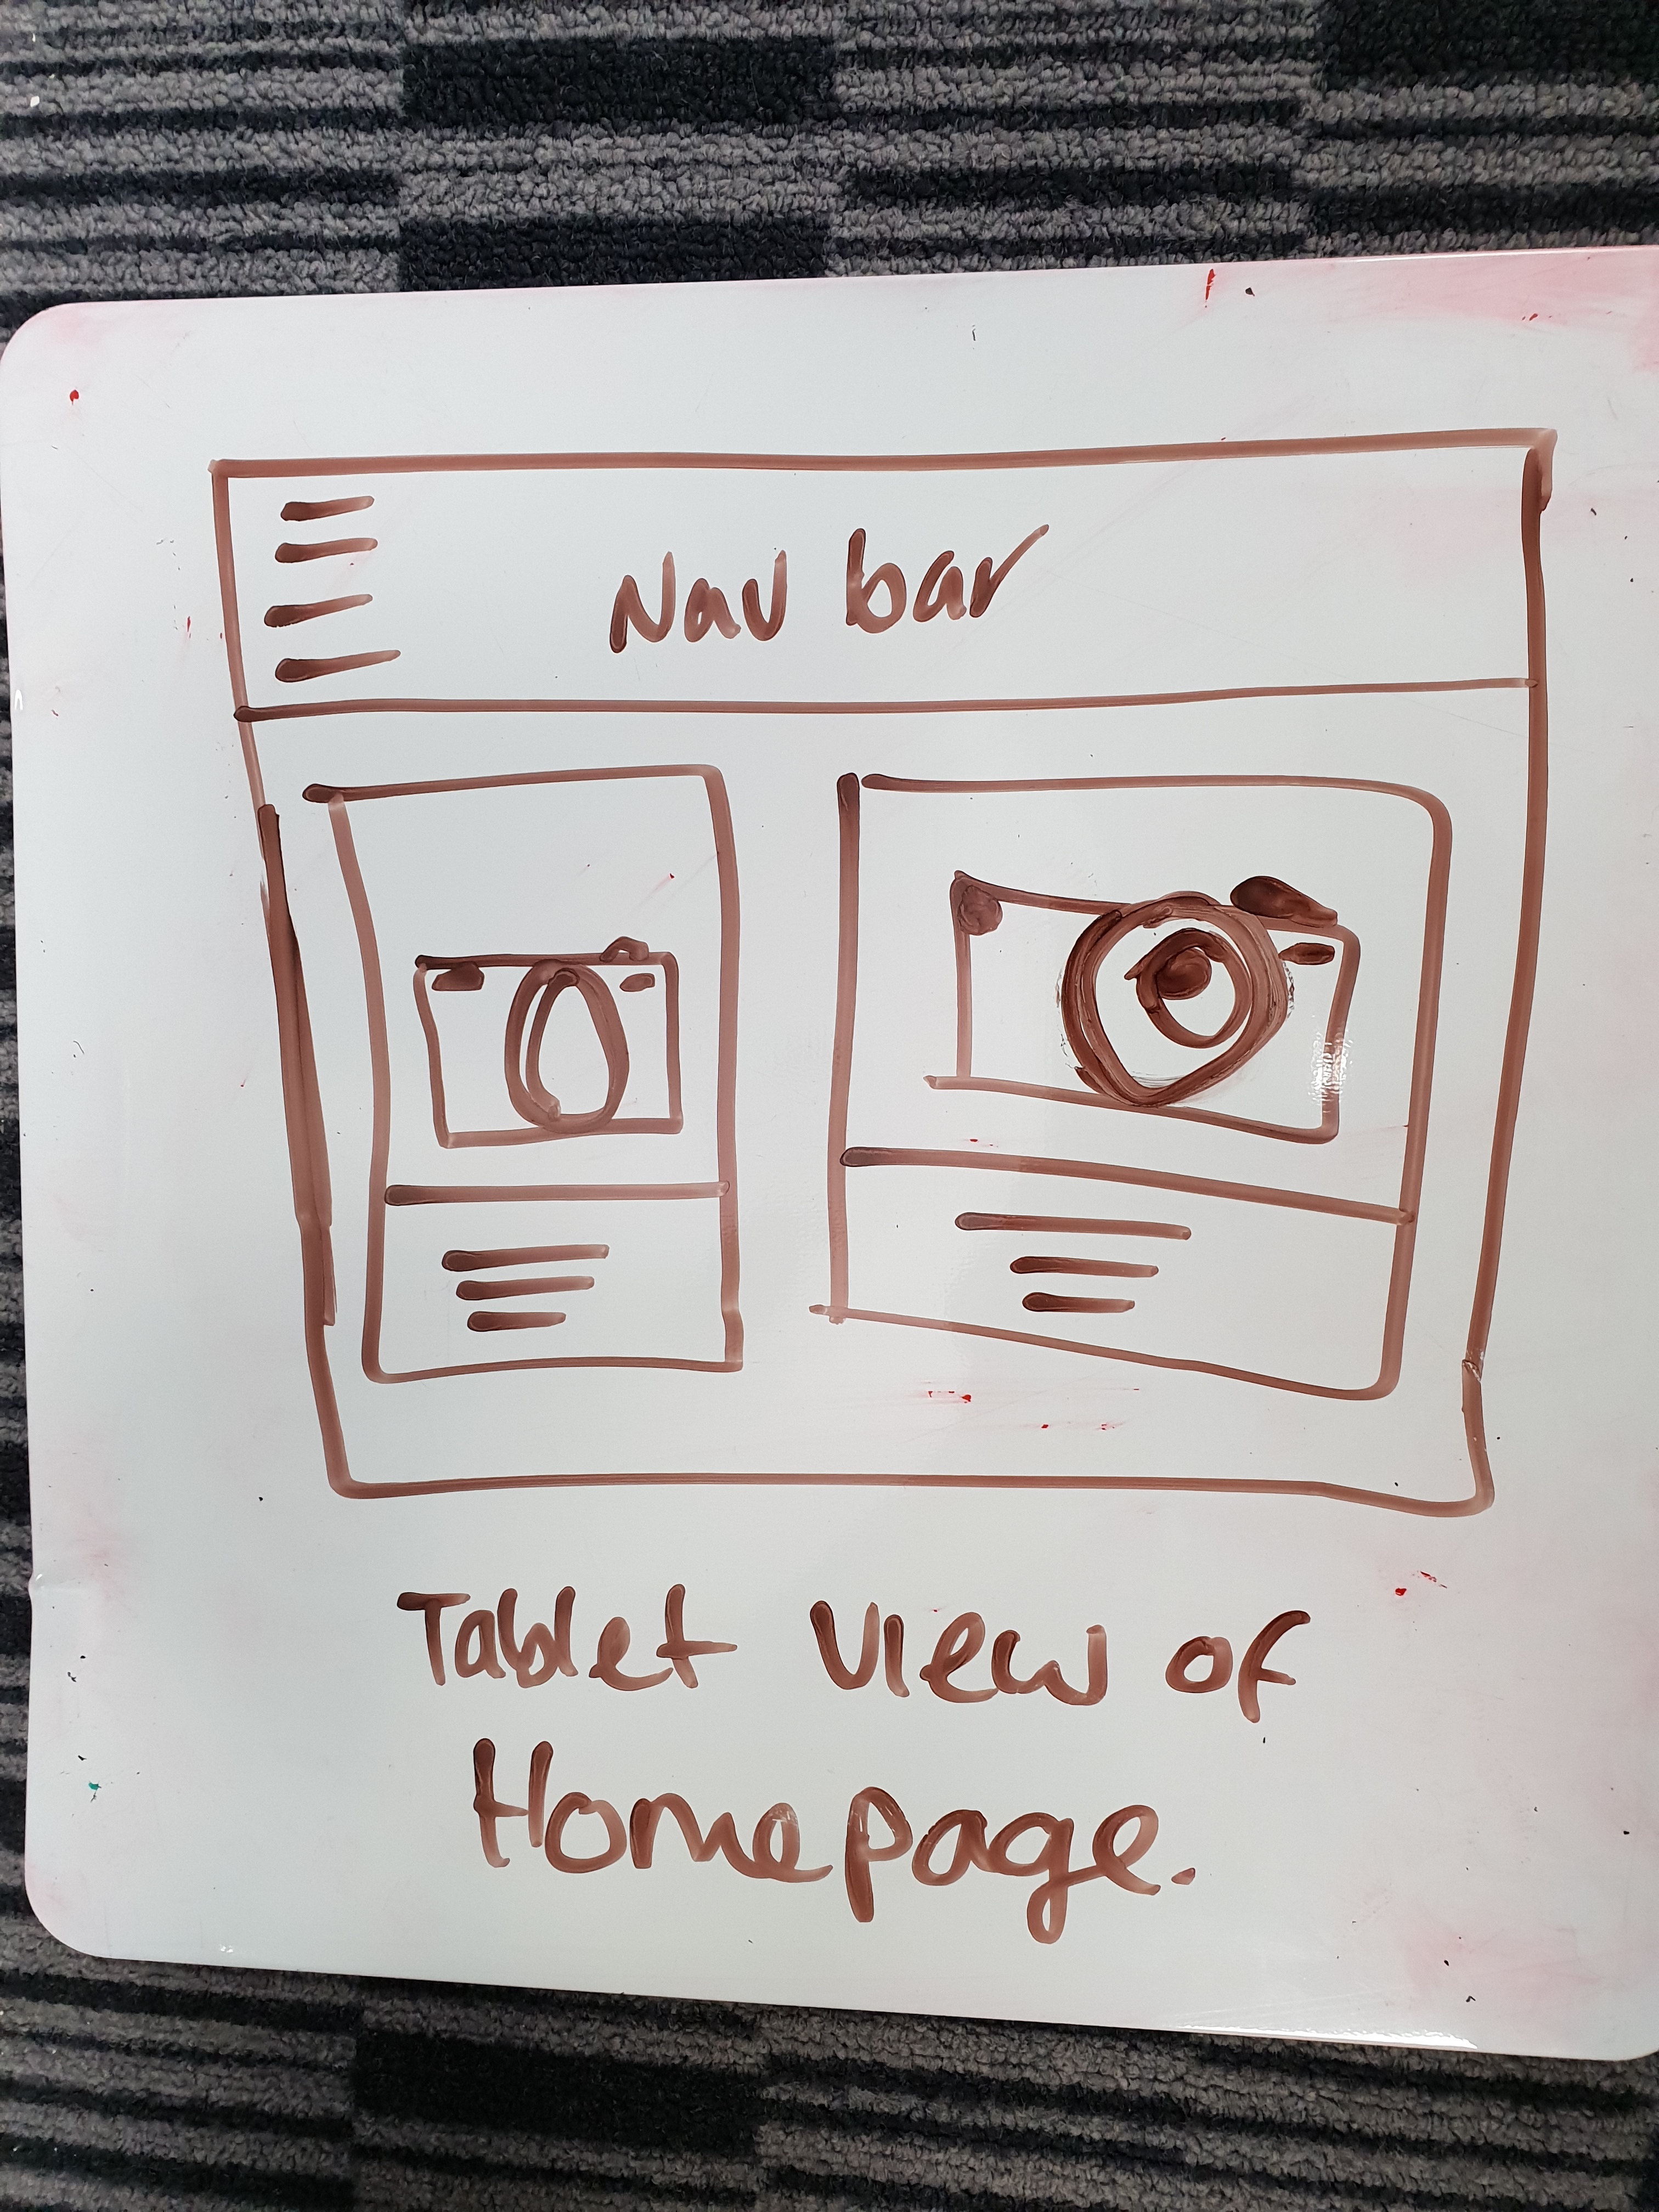 Nav bar
Tablet view of
Homepage.